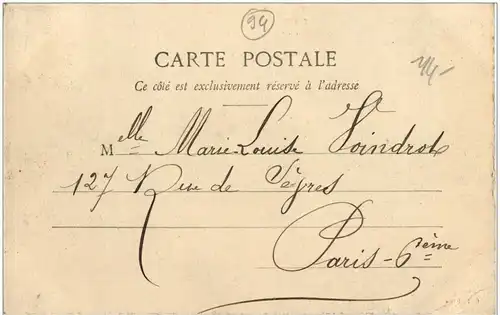 94
CARTE POSTALE
Ce côté est exclusivement réservé à l'adresse
44-
Melle Marie-Louise Voindrot
127 Rue de Sèvres
Paris-6ème